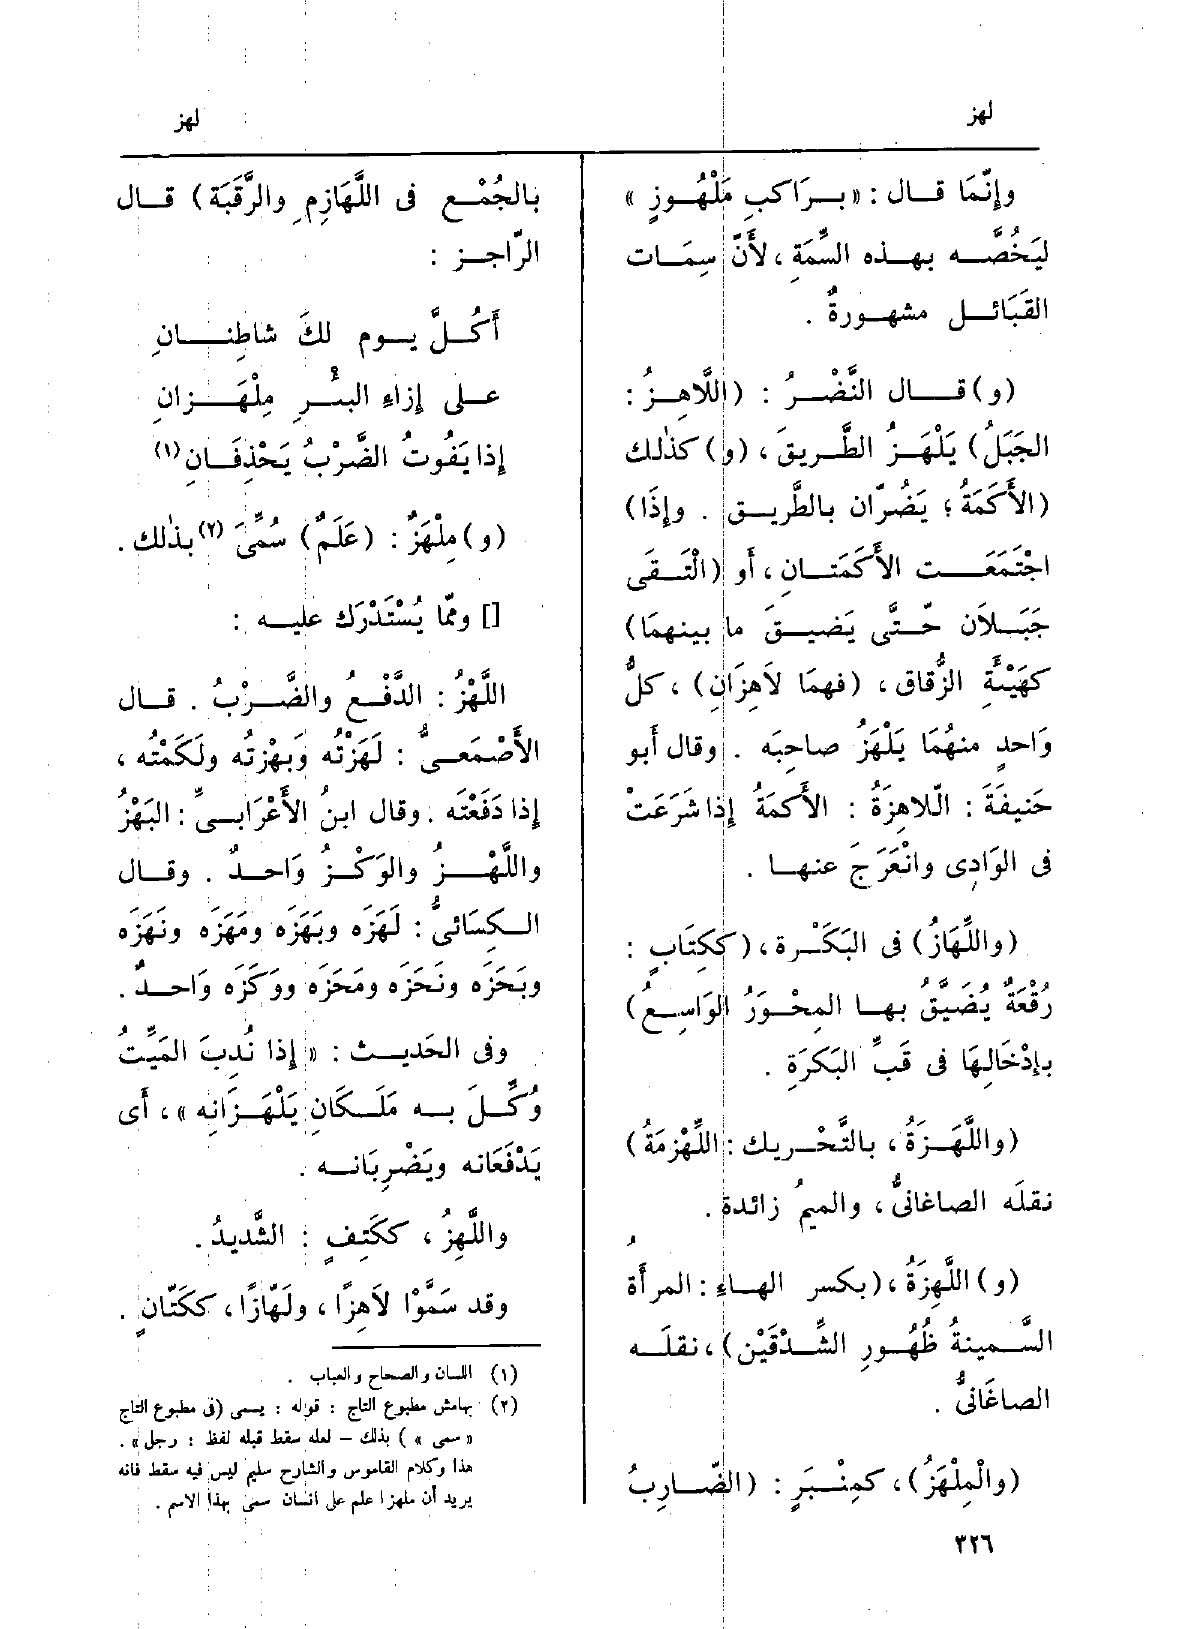 لهز
لهز
وإنّمَا قـال : «بـرَاكبِ مَلْهُـوزٍ»
ليَخُصَّـه بهـذه السِّمَةِ ، لأَنّ سِمَـات
القَبَائـل مشهـورةٌ .
(و) قـال النَّضْـرُ : (اللّاهِـزُ :
الجَبَلُ) يَلْهَـزُ الطَّـريقَ ، (و) كذٰلك
(الأَكَمَةُ ؛ يَضُرّان بالطَّريـق . وإِذَا)
اجْتَمَعَـت الأَكَمَتـان ، أَو (الْتَـقَى
جَبَـلاَن حـتَّى يَضيـقَ ما بينهما)
كهَيْئَةِ الزُّقاق ، (فهمَا لاَهِزَانِ) ، كلُّ
وَاحدٍ منهُمَا يَلْهَزُ صاحبَه . وقال أَبو
حَنيفَةَ : الّلاهِزَةُ : الأَكمَةُ إِذا شَرَعَتْ
فى الوَادِى وانْعَرَجَ عنهـا .
(واللِّهَازُ) فى البَكَـْرة ، (ككِتَابٍ :
رُقْعَةٌ يُضَيَّقُ بهـا المِحْـوَرُ الوَاسِـعُ)
بإِدْخَالِهَا فى قَبِّ البَكَرَةِ .
(واللَّهَـزَةُ ، بالتَّحْـريك : اللِّهْزِمَةُ)
نقلَه الصاغانىُّ ، والميمُ زائدة .
(و) اللَّهِزَةُ ، (بكسر الهـاءِ : المرأَةُ
السَّـمينةُ ظُهُـورِ الشِّـدْقَيْن) ، نقلَـه
الصاغَانىُّ .
(والْمِلْهَزُ) ، كمِنْبَـرٍ : (الضَّـارِبُ
بالجُمْـع فى اللَّهَازِمِ والرَّقَبَة) قـال
الرّاجـز :
أَكُـلَّ يـوم لكَ شاطِنـانِ
عـلى إِزاءِ البئْـرِ مِلْهَـزانِ
إِذا يَفُوتُ الضَّرْبُ يَحْذِفَـانِ (١)
(و) مِلْهَزٌ : (عَلَمٌ) سُمِّىَ (٢) بذٰلك .
[] وممّا يُسْتَدْرَك عليـه :
اللَّهْزُ : الدَّفْـعُ والضَّـرْبُ . قـال
الأَصْمَعـىُّ : لَهَزْتُه وَبهْزتُه ولَكَمْتُه ،
إِذا دَفَعْتَه . وقال ابنُ الأَعْرَابـىِّ : البَهْزُ
واللَّهْـزُ والوَكْـزُ وَاحـدٌ . وقـال
الـكِسَائىُّ : لَهَزَه وبَهَزَه ومَهَزَه ونَهَزَه
وبَحَزَه ونَحَزَه ومَحَزَه ووَكَزَه وَاحـدٌ .
وفى الحَديـث : « إِذا نُدِبَ المَيِّتُ
وُكِّـلَ بـه مَلَـكَانِ يَلْهَـزَانِه » ، أَى
يَدْفَعَانه ويَضْرِبَانـه .
واللَّهِزُ ، ككَتِفٍ : الشَّديدُ .
وقد سَمَّوْا لاَهِزًا ، ولَهّازًا ، ككَتّانٍ .
(١) اللسان والصحاح والعباب .
(٢) بهامش مطبوع التاج : قوله : يسمى (فى مطبوع التاج
«سمى») بذلك – لعله سقط قبله لفظ : رجل» .
هذا وكلام القاموس والشارح سليم ليس فيه سقط فانه
يريد أن ملهزا علم على انسان سمى بهذا الاسم .
٣٢٦